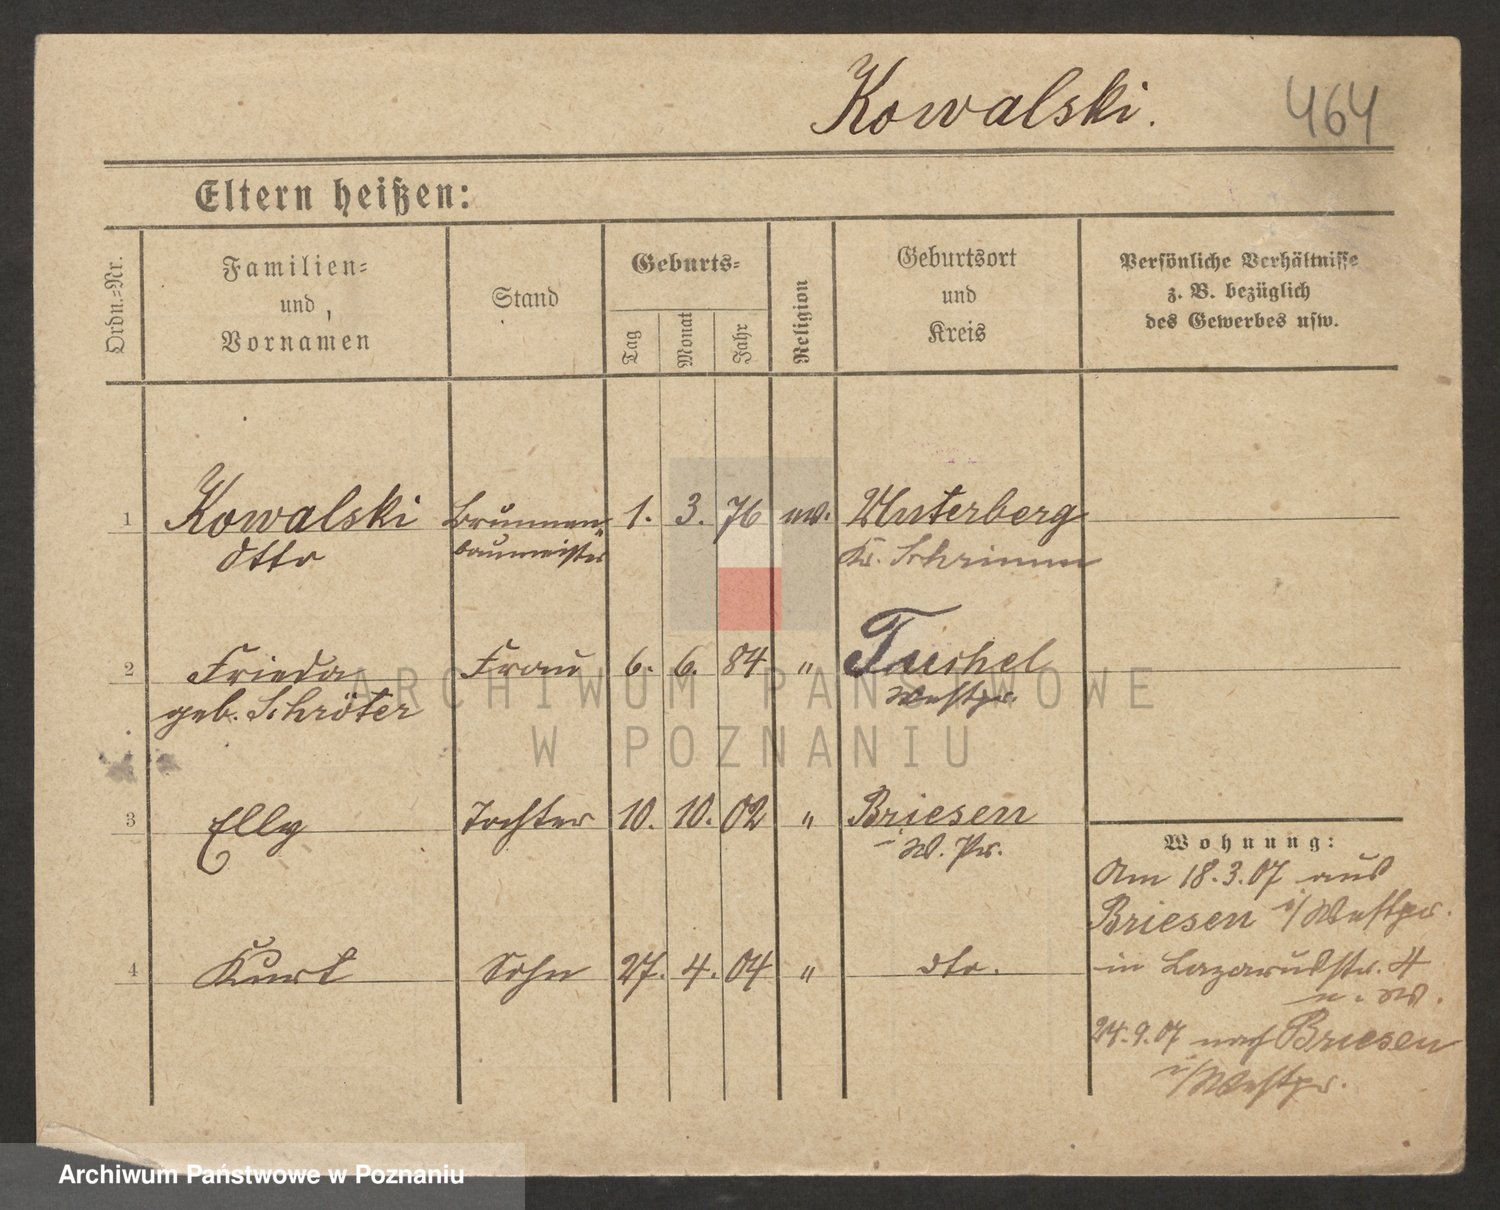 Kowalski. 464
Eltern heißen:
Ordn.=Nr.
Familien=
und
Vornamen
Stand
Geburts=
Tag
Monat
Jahr
Religion
Geburtsort
und
Kreis
Persönliche Verhältnisse
z. B. bezüglich
des Gewerbes usw.
1 Kowalski Brunnen 1. 3. 76 ev. Unterberg
Otto baumeister Kr. Schrimm
2 Frieda Frau 6. 6. 84 " Tuchel
geb. Schröter Westpr.
3 Elly Tochter 10. 10. 02 " Briesen
i W. Pr.
4 Kurt Sohn 27. 4. 04 " dto.
Wohnung:
Am 18.3.07 aus
Briesen i/Westpr.
in Lazarusstr. 4
24.9.07 nach Briesen
i/Westpr.
ARCHIWUM PAŃSTWOWE
W POZNANIU
Archiwum Państwowe w Poznaniu